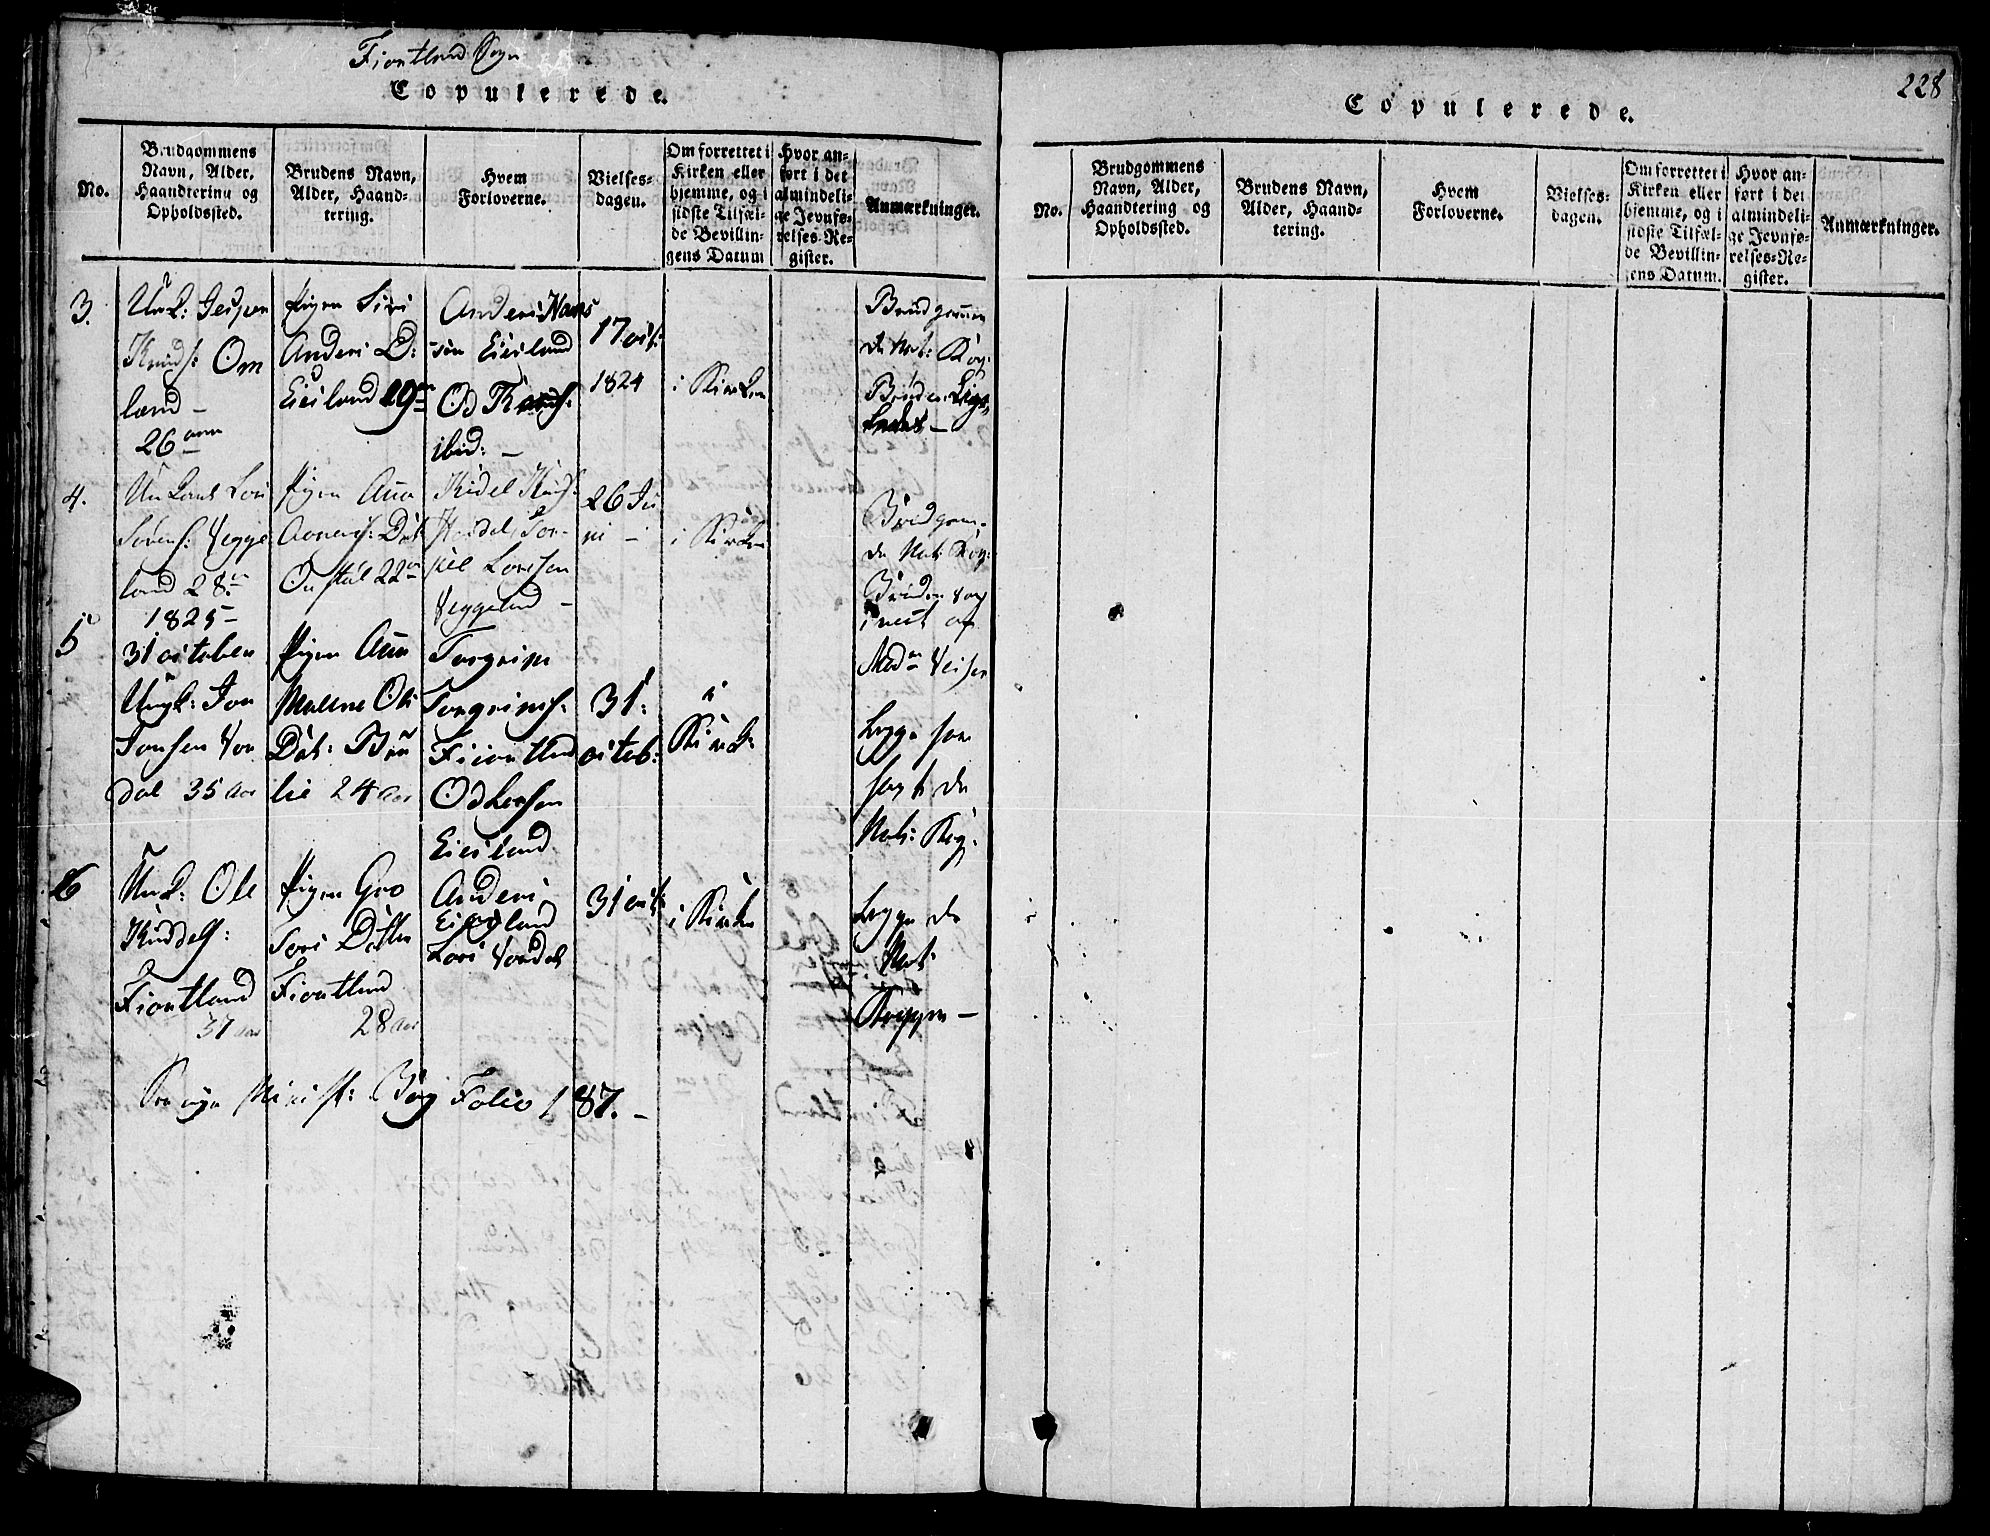 Fiortland Sogn
Copulerede.
No.
Brudgommens
Navn, Alder,
Haandtering og
Opholdssted.
Brudens Navn,
Alder, Haand-
tering.
Hvem
Forloverne.
Vielses-
dagen.
Om forrettet i
Kirken eller
hjemme, og i
sidste Tilfæl-
de Bevillin-
gens Datum
Hvor an-
ført i det
almindeli-
ge Jevnfø-
relses-Re-
gister.
Anmærkninger.
3.
Unk: Jesper
Knuds: Om
land –
26 aar
Pigen Siri
Anders D:
Eiesland 29
Anders Hans
sen Eiesland
Od
ibid: –
17 oct:
1824
i Kirken
Brudgommen
de Nat: Kop:
Bruden
4.
Lars
Sørens: Veggeland 28
1825 –
Pigen Ana
Dat:
Onstal 22
Kidel
Tor-
kil Larssen
Veggeland –
26 Ju
ni –
i Kirken
Brudgom.
de Nat: Kop:
Bruden
5
31 october
Ungk: Jon
Jonsen Vor
dal 35 aar
Pigen Ana
Malene Ols
Dat: Bru
lie 24 aar
Torgrim
Torgrims:
Fiortland
Od Larsen
Eiesland
31:
octob:
i
Kirck:
Begge
de
Nat: Kop:
6
Unk: Ole
Kiddels:
Fiortland
37 aar
Pigen Gro
Tors Datter
Fiortland
28 aar
Anders
Eiesland
Lars Vordal
31 oct:
i Kirken
Begge de
Nat:
Kopper –
See nye Minist: Bog Folio 187. –
228
Copulerede.
No.
Brudgommens
Navn, Alder,
Haandtering og
Opholdssted.
Brudens Navn,
Alder, Haand-
tering.
Hvem
Forloverne.
Vielses-
dagen.
Om forrettet i
Kirken eller
hjemme, og i
sidste Tilfæl-
de Bevillin-
gens Datum.
Hvor an-
ført i det
almindeli-
ge Jevnfø-
relses-Re-
gister.
Anmærkninger.